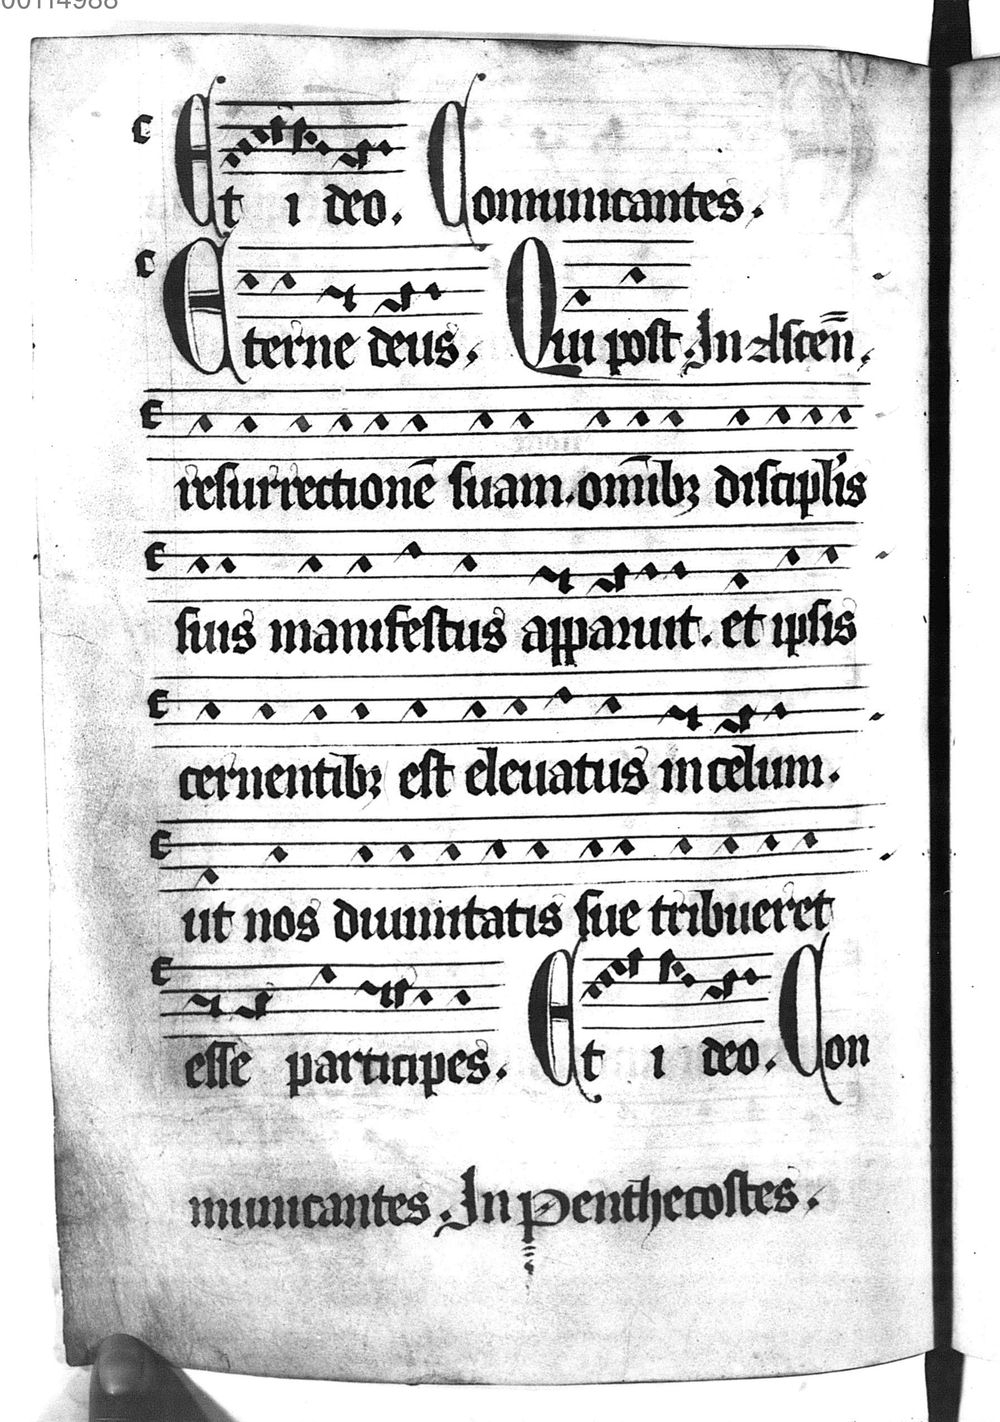 00114988
Et i deo. Comunicantes.
Eterne deus. Qui post In Ascen̄.
resurrectionē suam. om̄ibꝫ discipl'is
suis manifestus apparuit. et ipsis
cernentibꝫ est eleuatus in celum.
ut nos diuinitatis sue tribueret
esse participes. Et i deo. Con
municantes. In Penthecostes.